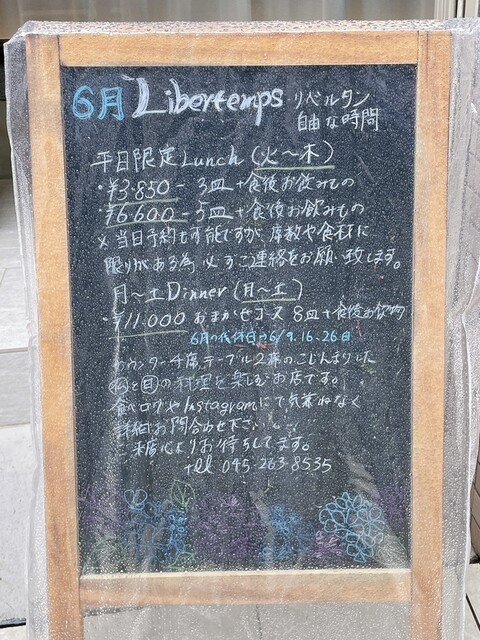 6月 Libertemps リベルタン
自由な時間
平日限定Lunch (火〜木)
・¥3.850- 3皿+食後お飲みもの
・¥6.600- 5皿+食後お飲みもの
※当日予約も可能ですが、席数や食材に
限りがある為 必ずご連絡をお願い致します。
月〜土Dinner (月〜土)
・¥11.000 おまかせコース 8皿+食後お飲物
6月の代休日→6/9.16.26日
カウンター4席、テーブル2席のこじんまりした
の料理を楽しむお店です。
食べログやInstagramにて気兼ねなく
詳細お問合わせ下さい。
来店心よりお待ちしてます。
tel 045-263-8535